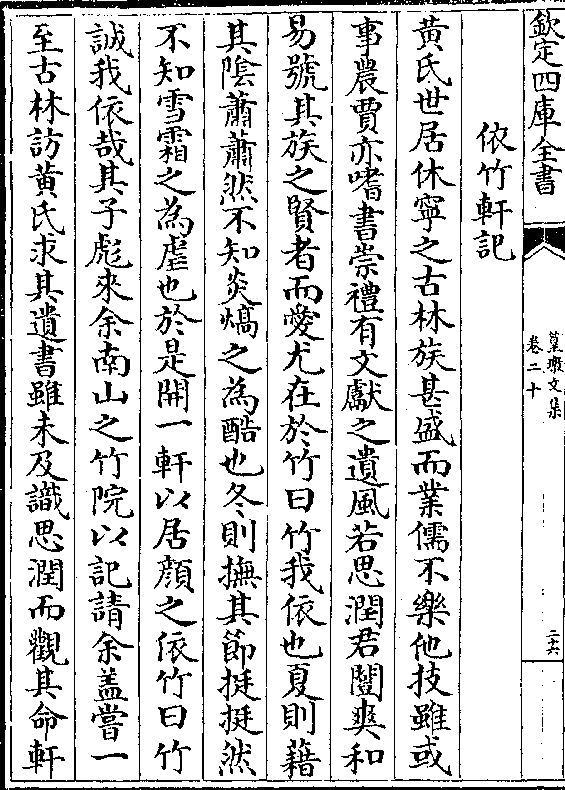 欽定四庫全書
篁墩文集
卷二十
二十六
依竹軒記
黃氏世居休寧之古林族甚盛而業儒不樂他技雖或
事農賈亦嗜書崇禮有文獻之遺風若思潤君闓爽和
易號其族之賢者而愛尤在於竹曰竹我依也夏則藉
其陰蕭蕭然不知炎熇之為酷也冬則撫其節挺挺然
不知雪霜之為虐也於是開一軒以居顔之依竹曰竹
誠我依哉其子彪來余南山之竹院以記請余蓋嘗一
至古林訪黃氏求其遺書雖未及識思潤而觀其命軒